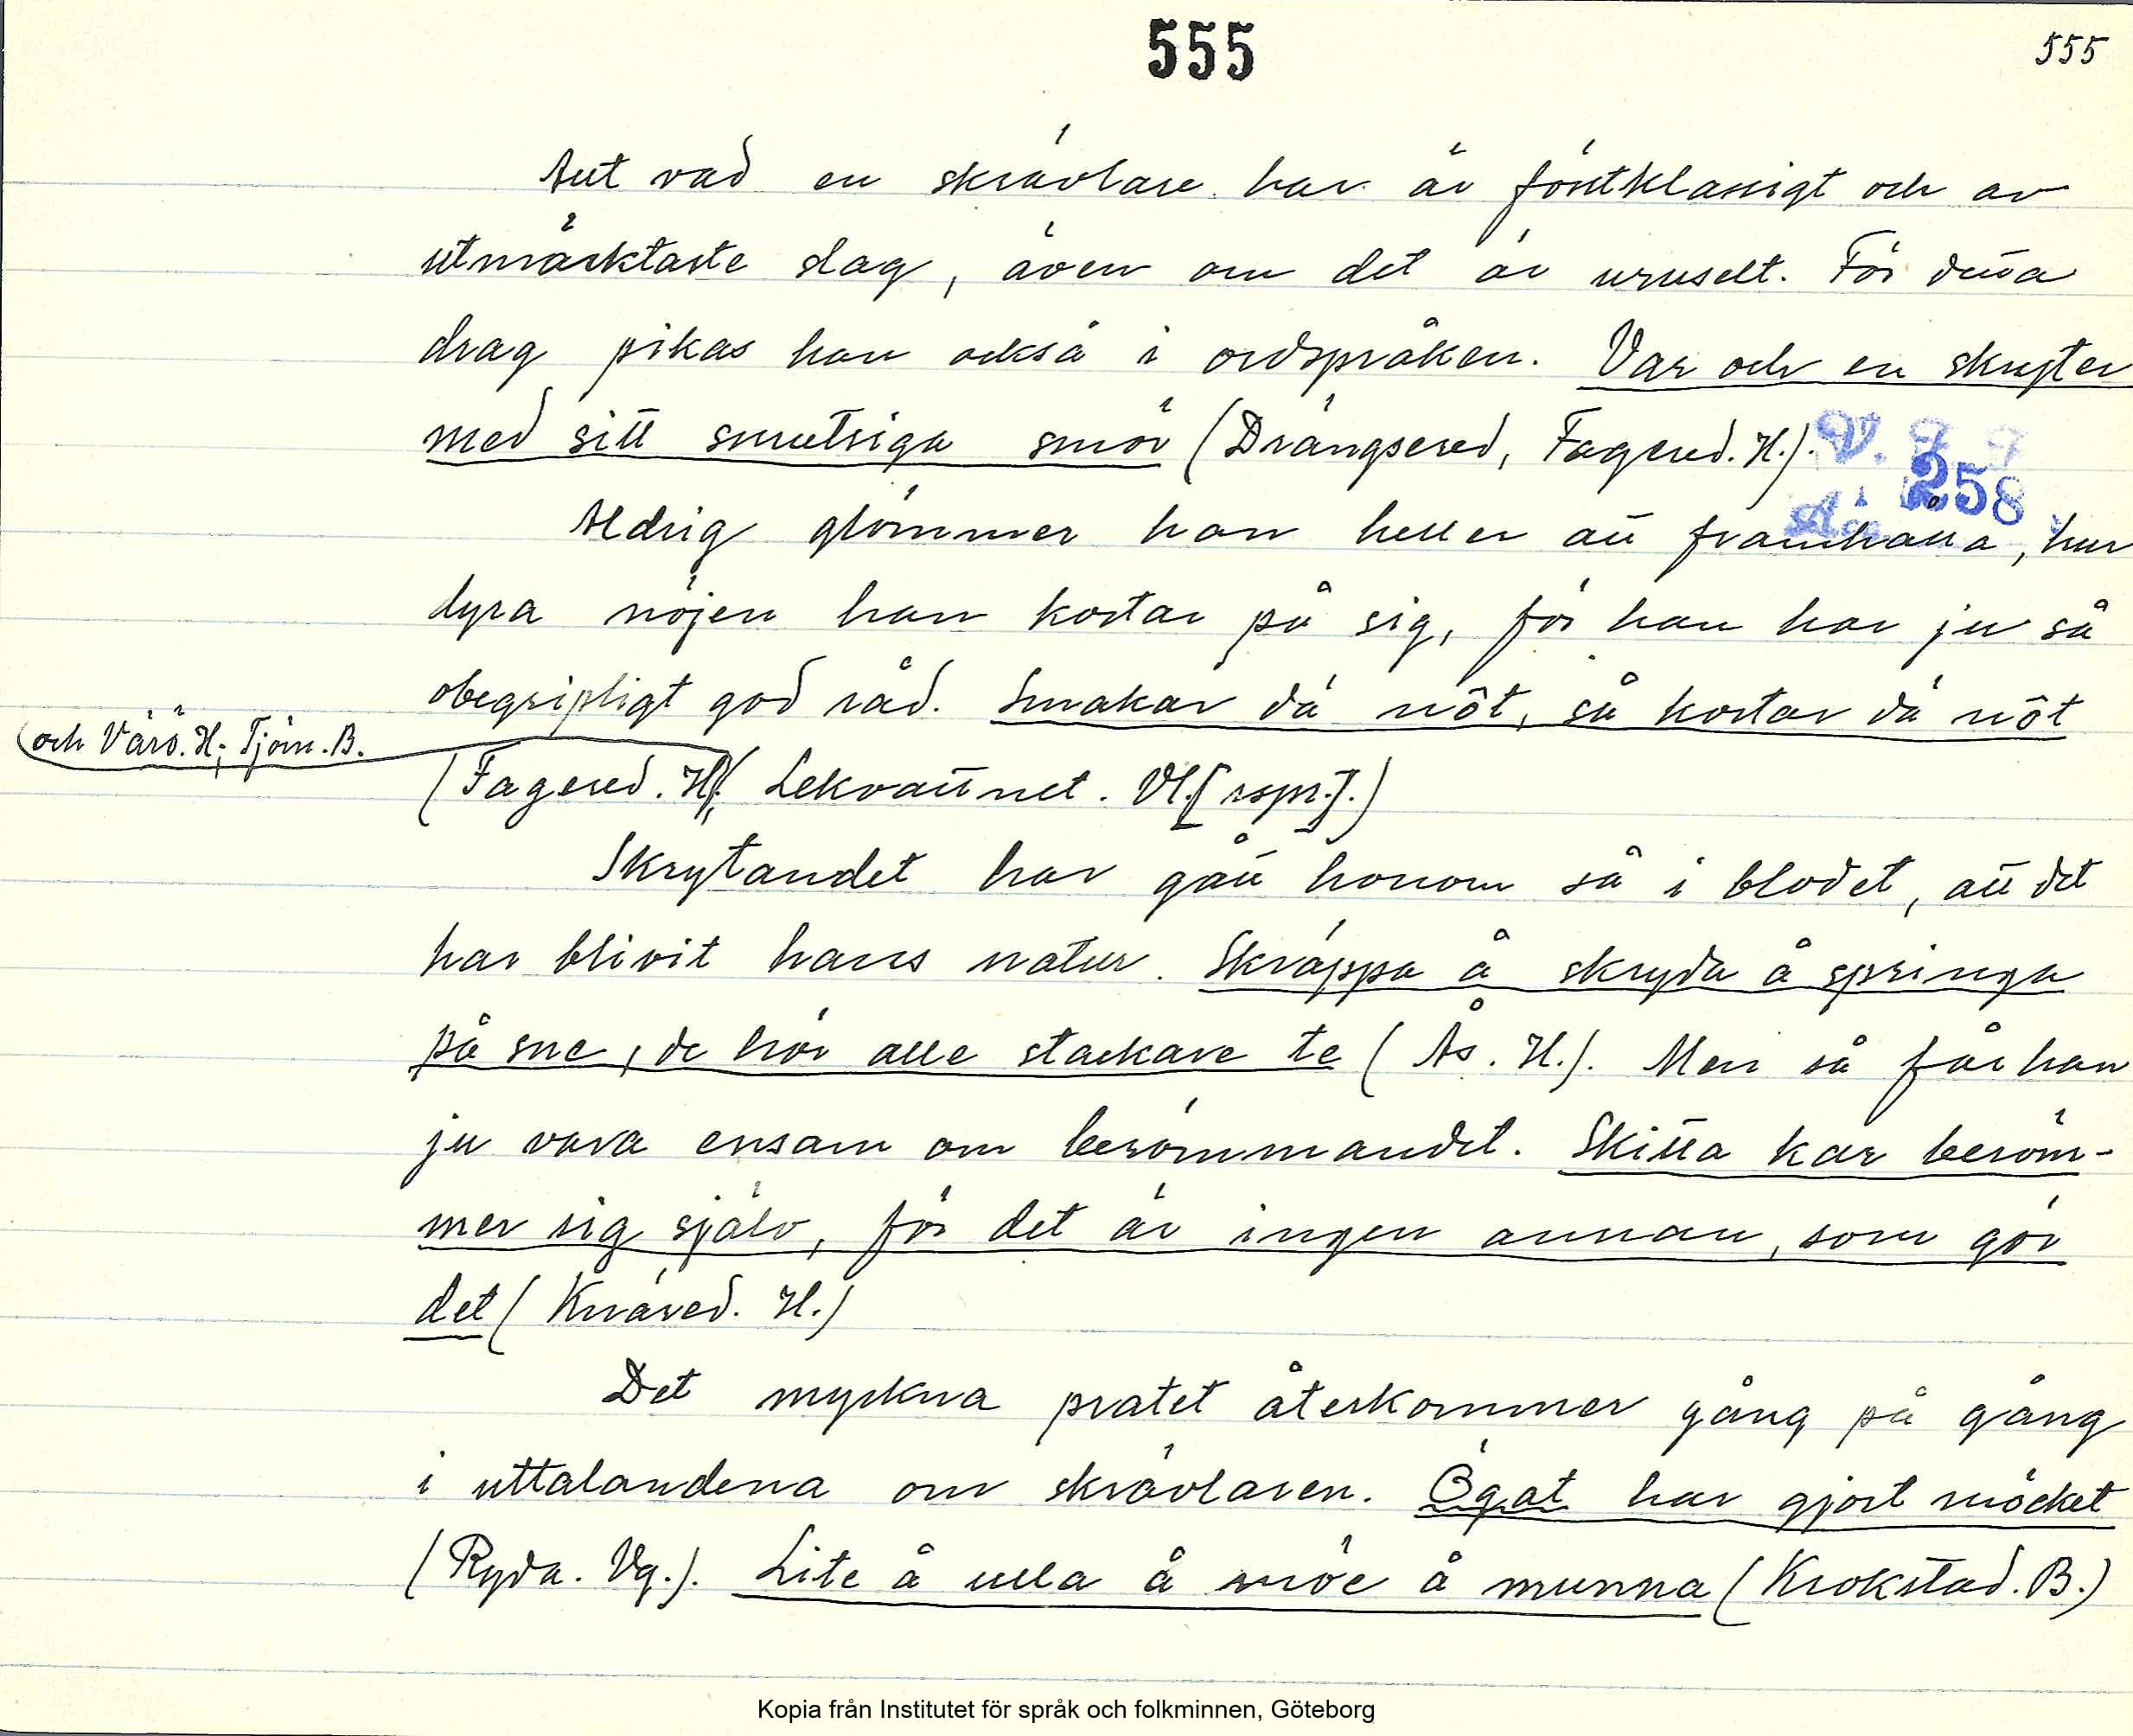 555
555
Allt vad en skrävlare har är förstklassigt och av
utmärktaste slag, även om det är uruselt. För detta
drag pikas han också i ordspråken. Var och en skryter
med sitt smutsiga smör (Drängsered, Fagered. H.).
V. F. F
258
Aldrig glömmer han heller att framhålla, hur
dyra nöjen han kostar på sig, för han har ju så
obegripligt god råd. Smakar dä nôt, så kostar dä nôt
och Värö. H; Tjörn. B.
(Fagered. H; Lekvattnet. Vl.[rspr.].)
Skrytandet har gått honom så i blodet, att det
har blivit hans natur. Skräppa å skryda å springa
på sne, de hör alle stackare te (Ås. H.). Men så får han
ju vara ensam om berömmandet. Skitta kar beröm-
mer sig själv, för det är ingen annan, som gör
det (Knäred. H.)
Det myckna pratet återkommer gång på gång
i uttalandena om skrävlaren. Ögat har gjort möcket
(Ryda. Vg.). Lite å ulla å möe å munna (Krokstad. B.)
Kopia från Institutet för språk och folkminnen, Göteborg